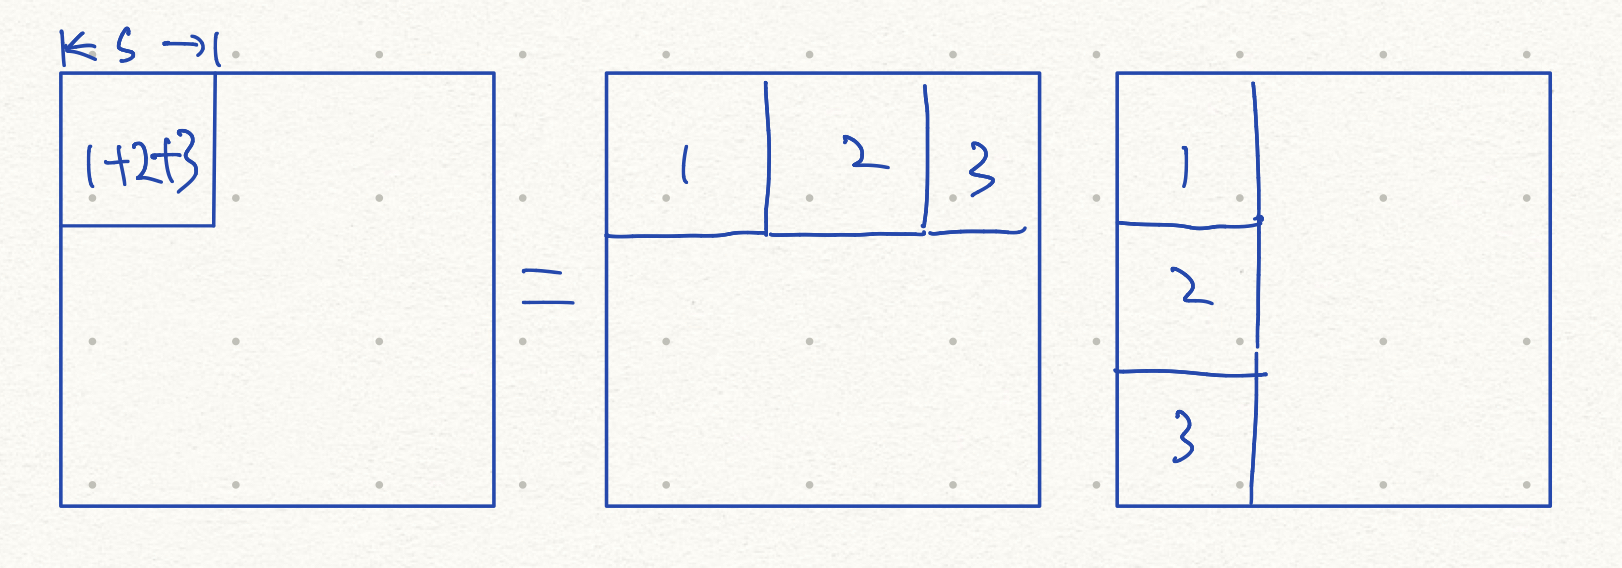 |← s →|
1+2+3
=
1 2 3
1
2
3